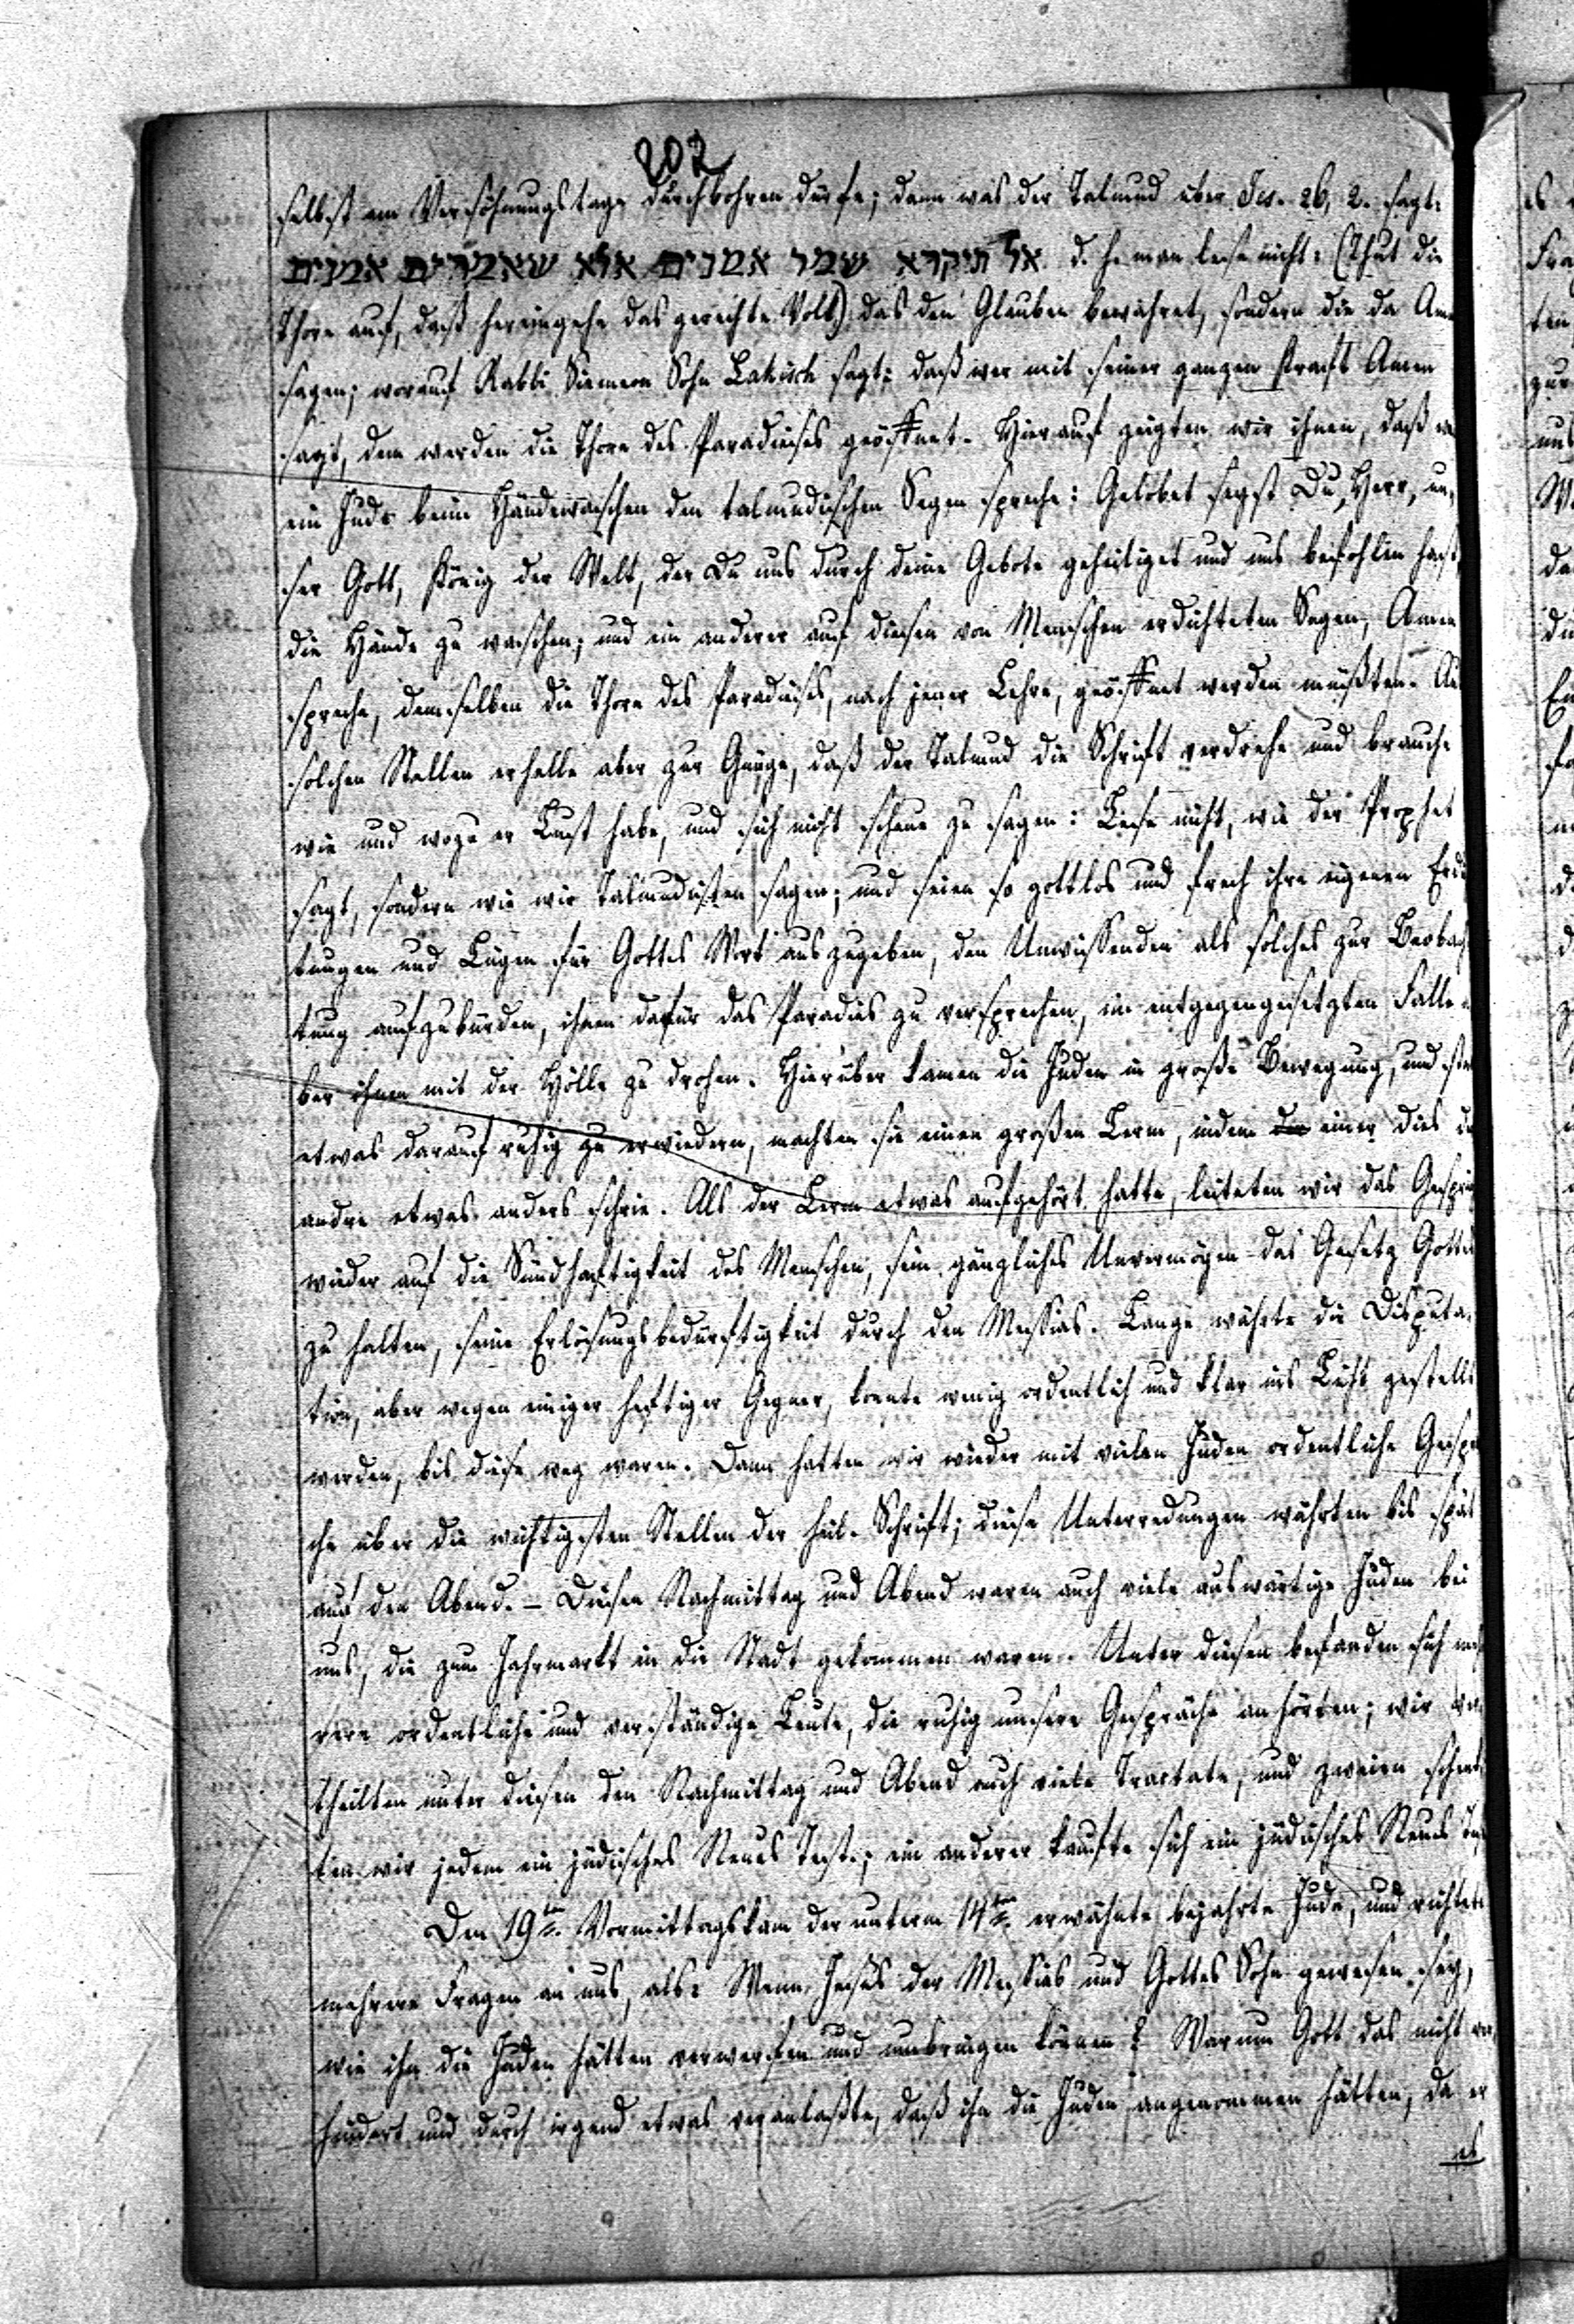 202
selbst am Versöhnungstage durchbohren dürfe; denn was der Talmud über Jes. 26, 2. sagt:
אל תיקרא שמר אמנים אלא שאמרים אמנים d. h. man lese nicht: (Thut die
Thore auf, daß hereingehe das gerechte Volk) das den Glauben bewahret, sondern die da Amen
sagen; worauf Rabbi Simeon Sohn Lakisch sagt: daß wer mit seiner ganzen Kraft Amen
sagt, dem werden die Thore des Paradieses geöffnet. Hierauf zeigten wir ihnen, daß
ein Jude beim Händewaschen den talmudischen Segen spreche: Gelobet seyst Du, Herr, un-
ser Gott, König der Welt, der Du uns durch deine Gebote geheiliget und uns befohlen hast,
die Hände zu waschen; und ein anderer auf diesen von Menschen erdichteten Segen, Amen
spreche, demselben die Thore des Paradieses, nach jener Lehre, geöffnet werden müßten. Aus
solchen Stellen erhelle aber zur Gnüge, daß der Talmud die Schrift verdrehe und brauche
wie und wozu er Lust habe, und sich nicht scheue zu sagen: Lese nicht, wie der Prophet
sagt, sondern wie wir Talmudisten sagen; und seien so gottlos und frech ihre eigenen Erdich
tungen und Lügen für Gottes Wort auszugeben, den Unwissenden als solches zur Beobach
tung aufzubürden, ihnen dafür das Paradies zu versprechen, im entgegengesetzten Falle a
ber ihnen mit der Hölle zu drohen. Hierüber kamen die Juden in große Bewegung, und statt
etwas darauf ruhig zu erwiedern, machten sie einen großen Lerm, indem einer dies der
andre etwas anders schrie. Als der Lerm etwas aufgehört hatte, leiteten wir das Gespräch
wieder auf die Sündhaftigkeit des Menschen, sein gänzliches Unvermögen das Gesetz Gottes
zu halten, seine Erlösungsbedürftigkeit durch den Messias. Lange währte die Disputa-
tion, aber wegen einiger heftiger Gegner, konnte wenig ordentlich und klar ins Licht gestellt
werden, bis diese weg waren. Dann hatten wir wieder mit vielen Juden ordentliche Gesprä
che über die wichtigsten Stellen der heil. Schrift; diese Unterredungen währten bis spät
auf den Abend. – Diesen Nachmittag und Abend waren auch viele auswärtige Juden bei
uns, die zum Jahrmarkt in die Stadt gekommen waren. Unter diesen befanden sich meh
rere ordentliche und verständige Leute, die ruhig unsere Gespräche anhörten; wir ver
theilten unter diesen den Nachmittag und Abend auch viele Tractate, und zweien schenk
ten wir jedem ein jüdisches Neues Test.; ein anderer kaufte sich ein jüdisches Neues Test
Den 19ten Vormittags kam der unterm 14ten erwähnte bejahrte Jude, und richtete
mehrere Fragen an uns, als: Wenn Jesus der Messias und Gottes Sohn gewesen sey,
wie ihn die Juden hätten verwerfen und umbringen können? Warum Gott das nicht ver
hindert und durch irgend etwas veranlaßte, daß ihn die Juden angenommen hätten, da er
es